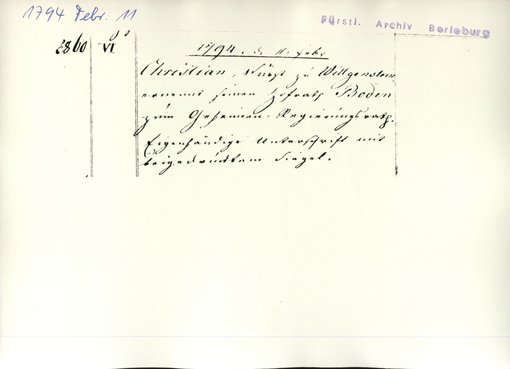 1794 Febr. 11
Fürstl. Archiv Berleburg
3860 VI
1794. d. 11. Febr.
Christian, Fürst zu Wittgenstein,
ernennt seinen Hofrath Boden
zum Geheimen Regierungsrath.
Eigenhändige Unterschrift mit
beigedrucktem Siegel.